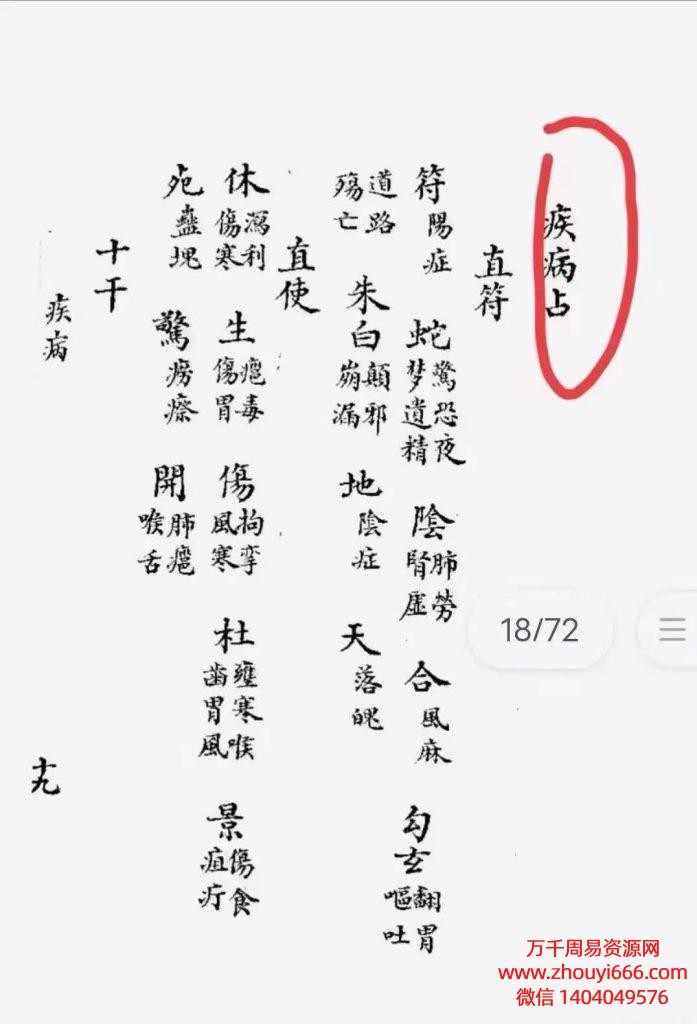 疾病占
直符
符 陽症 蛇 驚恐夜梦遺精 陰 肺勞腎虛 合 風麻 勾玄 翻胃嘔吐
道路殤亡 朱白 顛邪崩漏 地 陰症 天 落魄
直使
休 瀉利傷寒 生 瘧毒傷胃 傷 拘攣風寒 杜 寒喉齒胃風 景 傷食疽疔
蠱塊 驚 癆瘵 開 肺瘧喉舌
十干
疾病
十九
18/72
万千周易资源网
www.zhouyi666.com
微信 1404049576